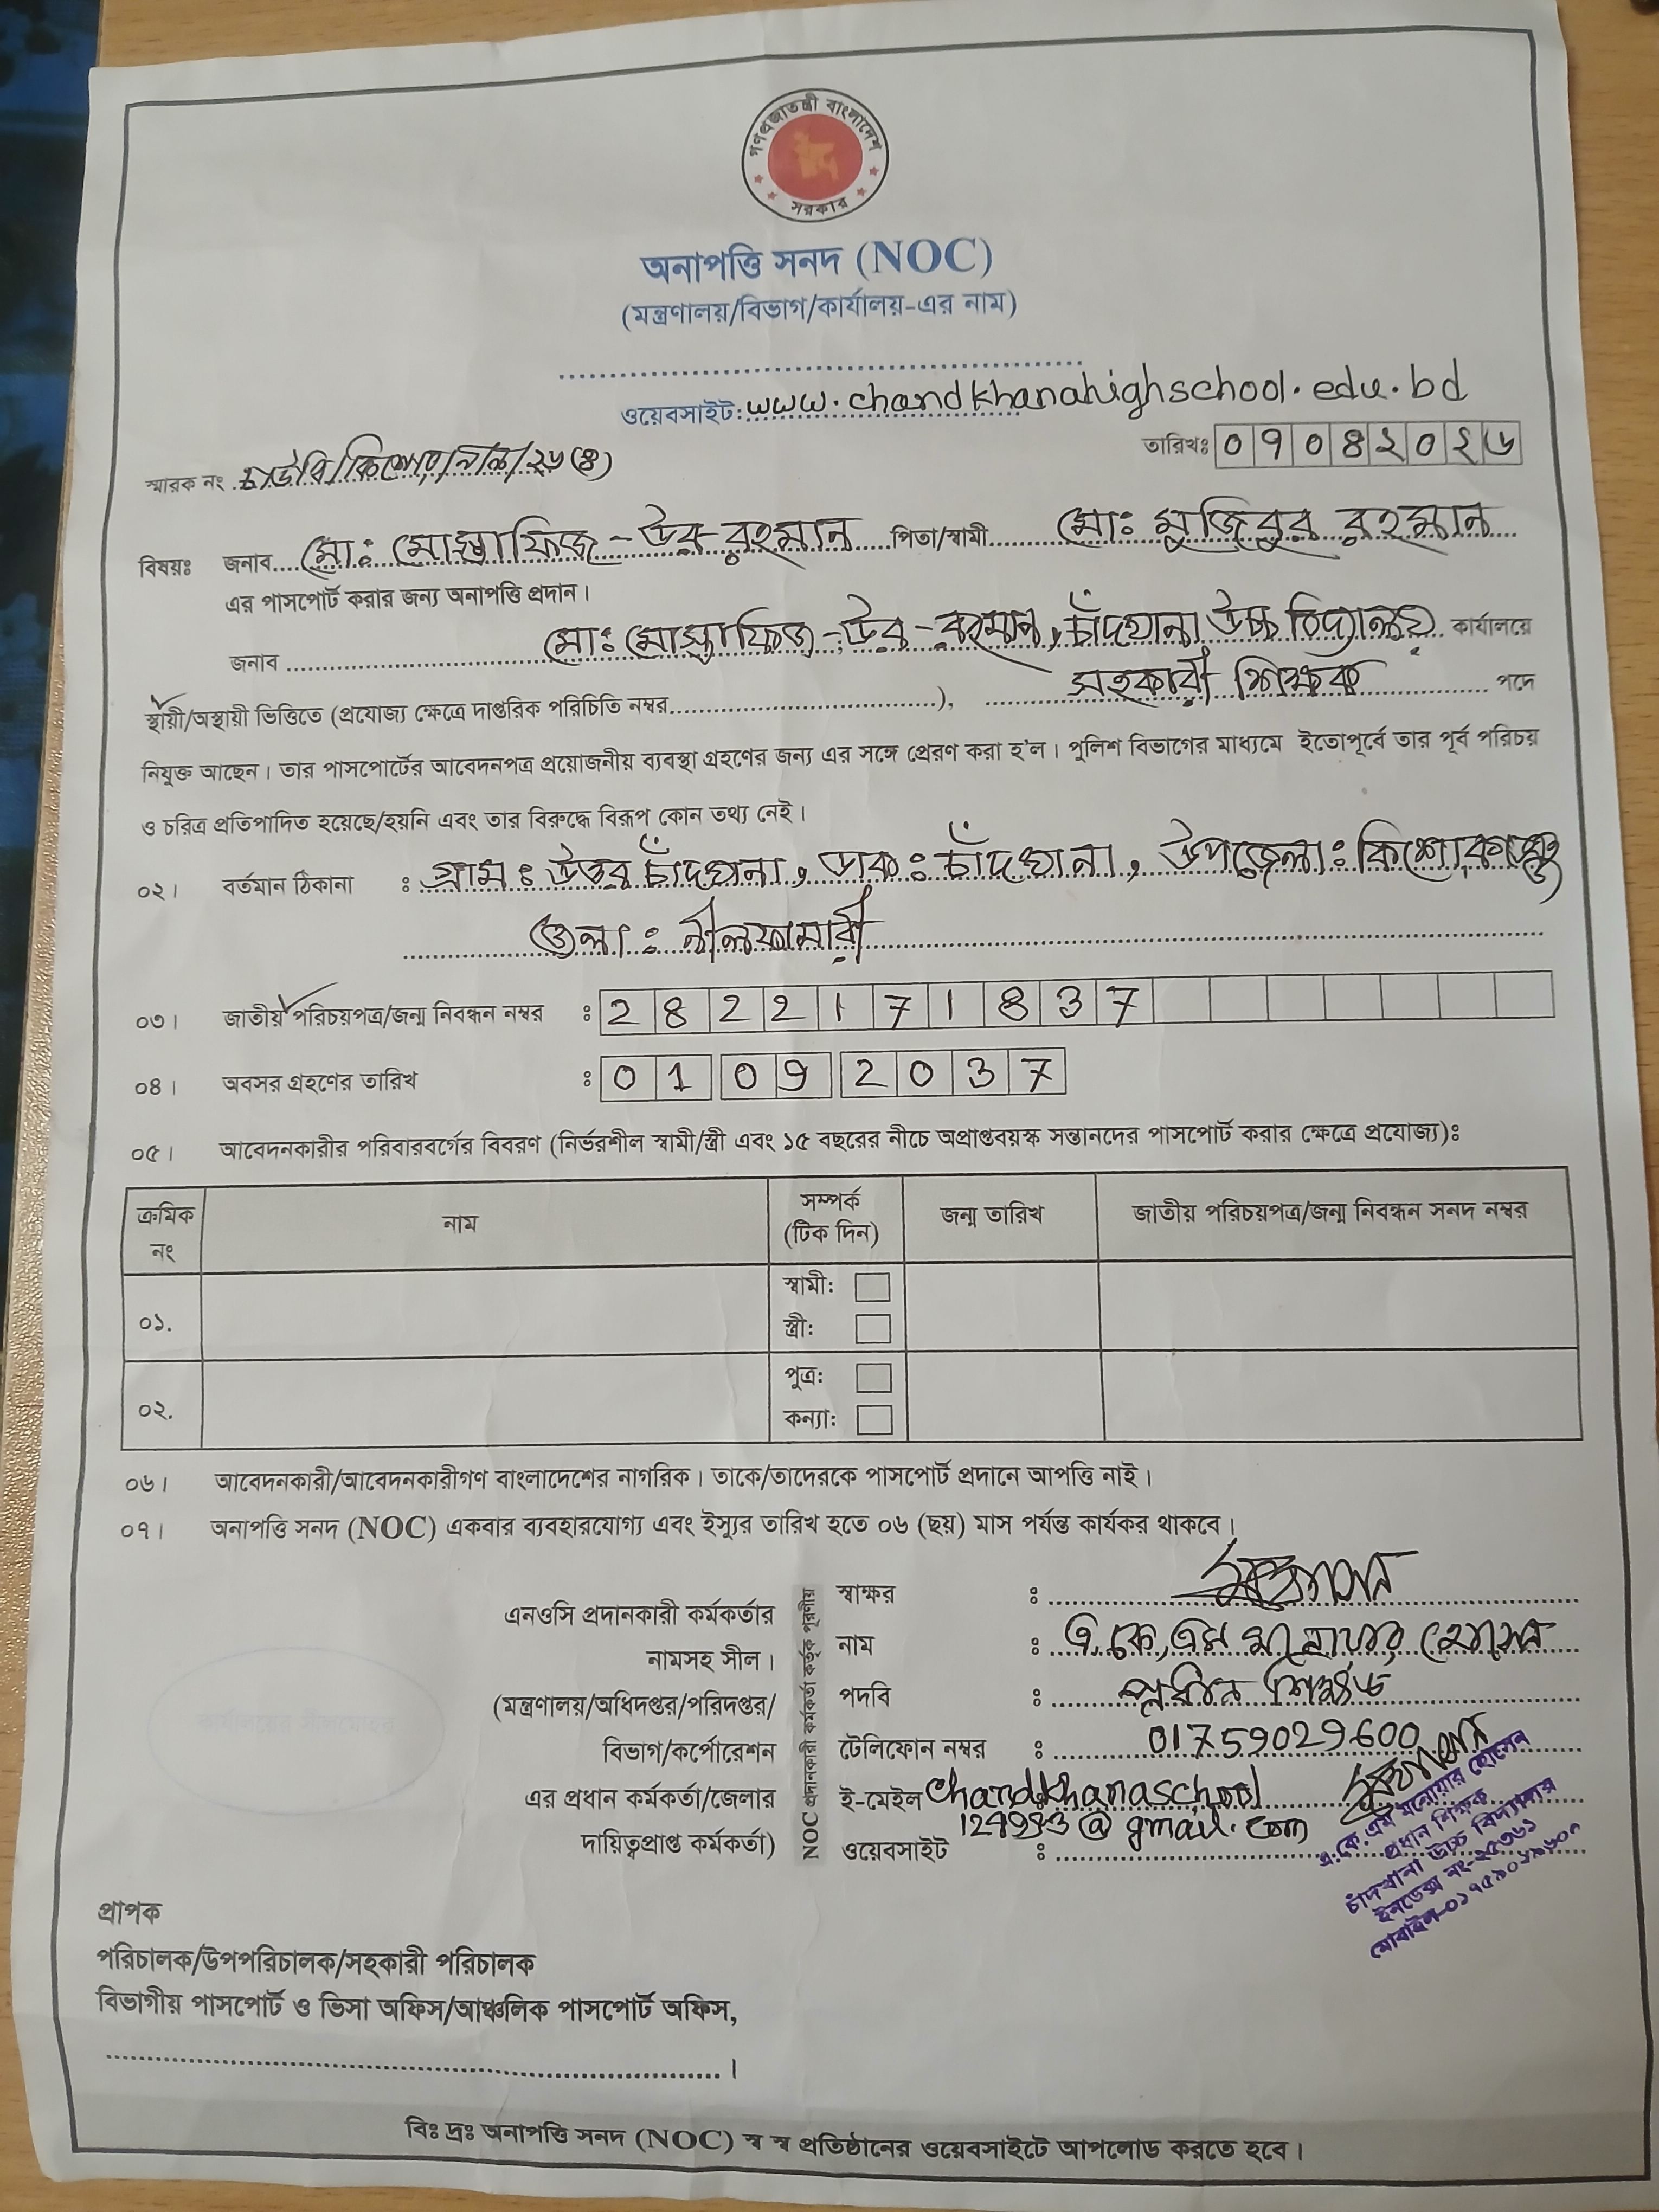 গণপ্রজাতন্ত্রী বাংলাদেশ
সরকার
অনাপত্তি সনদ (NOC)
(মন্ত্রণালয়/বিভাগ/কার্যালয়-এর নাম)
ওয়েবসাইট: www.chandkhanahighschool.edu.bd
তারিখঃ ০৭০৪২০২৬
স্মারক নং চাউবি/কিশো/নীল/২৬(৪)
বিষয়ঃ জনাব মোঃ মোস্তাফিজ-উর-রহমান পিতা/স্বামী মোঃ মুজিবুর রহমান
এর পাসপোর্ট করার জন্য অনাপত্তি প্রদান।
জনাব মোঃ মোস্তাফিজ-উর-রহমান, চাঁদখানা উচ্চ বিদ্যালয় কার্যালয়ে
স্থায়ী/অস্থায়ী ভিত্তিতে (প্রযোজ্য ক্ষেত্রে দাপ্তরিক পরিচিতি নম্বর), সহকারী শিক্ষক পদে
নিযুক্ত আছেন। তার পাসপোর্টের আবেদনপত্র প্রয়োজনীয় ব্যবস্থা গ্রহণের জন্য এর সঙ্গে প্রেরণ করা হ'ল। পুলিশ বিভাগের মাধ্যমে ইতোপূর্বে তার পূর্ব পরিচয়
ও চরিত্র প্রতিপাদিত হয়েছে/হয়নি এবং তার বিরুদ্ধে বিরূপ কোন তথ্য নেই।
০২। বর্তমান ঠিকানা : গ্রাম: উত্তর চাঁদখানা, ডাক: চাঁদখানা, উপজেলা: কিশোরগঞ্জ
জেলা: নীলফামারী
০৩। জাতীয় পরিচয়পত্র/জন্ম নিবন্ধন নম্বর : 2822171837
০৪। অবসর গ্রহণের তারিখ : 01 09 2037
০৫। আবেদনকারীর পরিবারবর্গের বিবরণ (নির্ভরশীল স্বামী/স্ত্রী এবং ১৫ বছরের নীচে অপ্রাপ্তবয়স্ক সন্তানদের পাসপোর্ট করার ক্ষেত্রে প্রযোজ্য):
ক্রমিক নং নাম সম্পর্ক (টিক দিন) জন্ম তারিখ জাতীয় পরিচয়পত্র/জন্ম নিবন্ধন সনদ নম্বর
০১. স্বামী:
স্ত্রী:
০২. পুত্র:
কন্যা:
০৬। আবেদনকারী/আবেদনকারীগণ বাংলাদেশের নাগরিক। তাকে/তাদেরকে পাসপোর্ট প্রদানে আপত্তি নাই।
০৭। অনাপত্তি সনদ (NOC) একবার ব্যবহারযোগ্য এবং ইস্যুর তারিখ হতে ০৬ (ছয়) মাস পর্যন্ত কার্যকর থাকবে।
এনওসি প্রদানকারী কর্মকর্তার
নামসহ সীল।
(মন্ত্রণালয়/অধিদপ্তর/পরিদপ্তর/
বিভাগ/কর্পোরেশন
এর প্রধান কর্মকর্তা/জেলার
দায়িত্বপ্রাপ্ত কর্মকর্তা)
NOC প্রদানকারী কর্মকর্তা কর্তৃক পূরণীয়
স্বাক্ষর :
নাম : এ.কে.এম মনোয়ার হোসেন
পদবি : প্রধান শিক্ষক
টেলিফোন নম্বর : 01759029600
ই-মেইল chandkhanaschool
@gmail.com
ওয়েবসাইট :
এ.কে.এম মনোয়ার হোসেন
প্রধান শিক্ষক
চাঁদখানা উচ্চ বিদ্যালয়
ইনডেক্স নং-
মোবাইল-০১৭৫৯০২৯৬০০
প্রাপক
পরিচালক/উপপরিচালক/সহকারী পরিচালক
বিভাগীয় পাসপোর্ট ও ভিসা অফিস/আঞ্চলিক পাসপোর্ট অফিস,
।
বিঃ দ্রঃ অনাপত্তি সনদ (NOC) স্ব স্ব প্রতিষ্ঠানের ওয়েবসাইটে আপলোড করতে হবে।